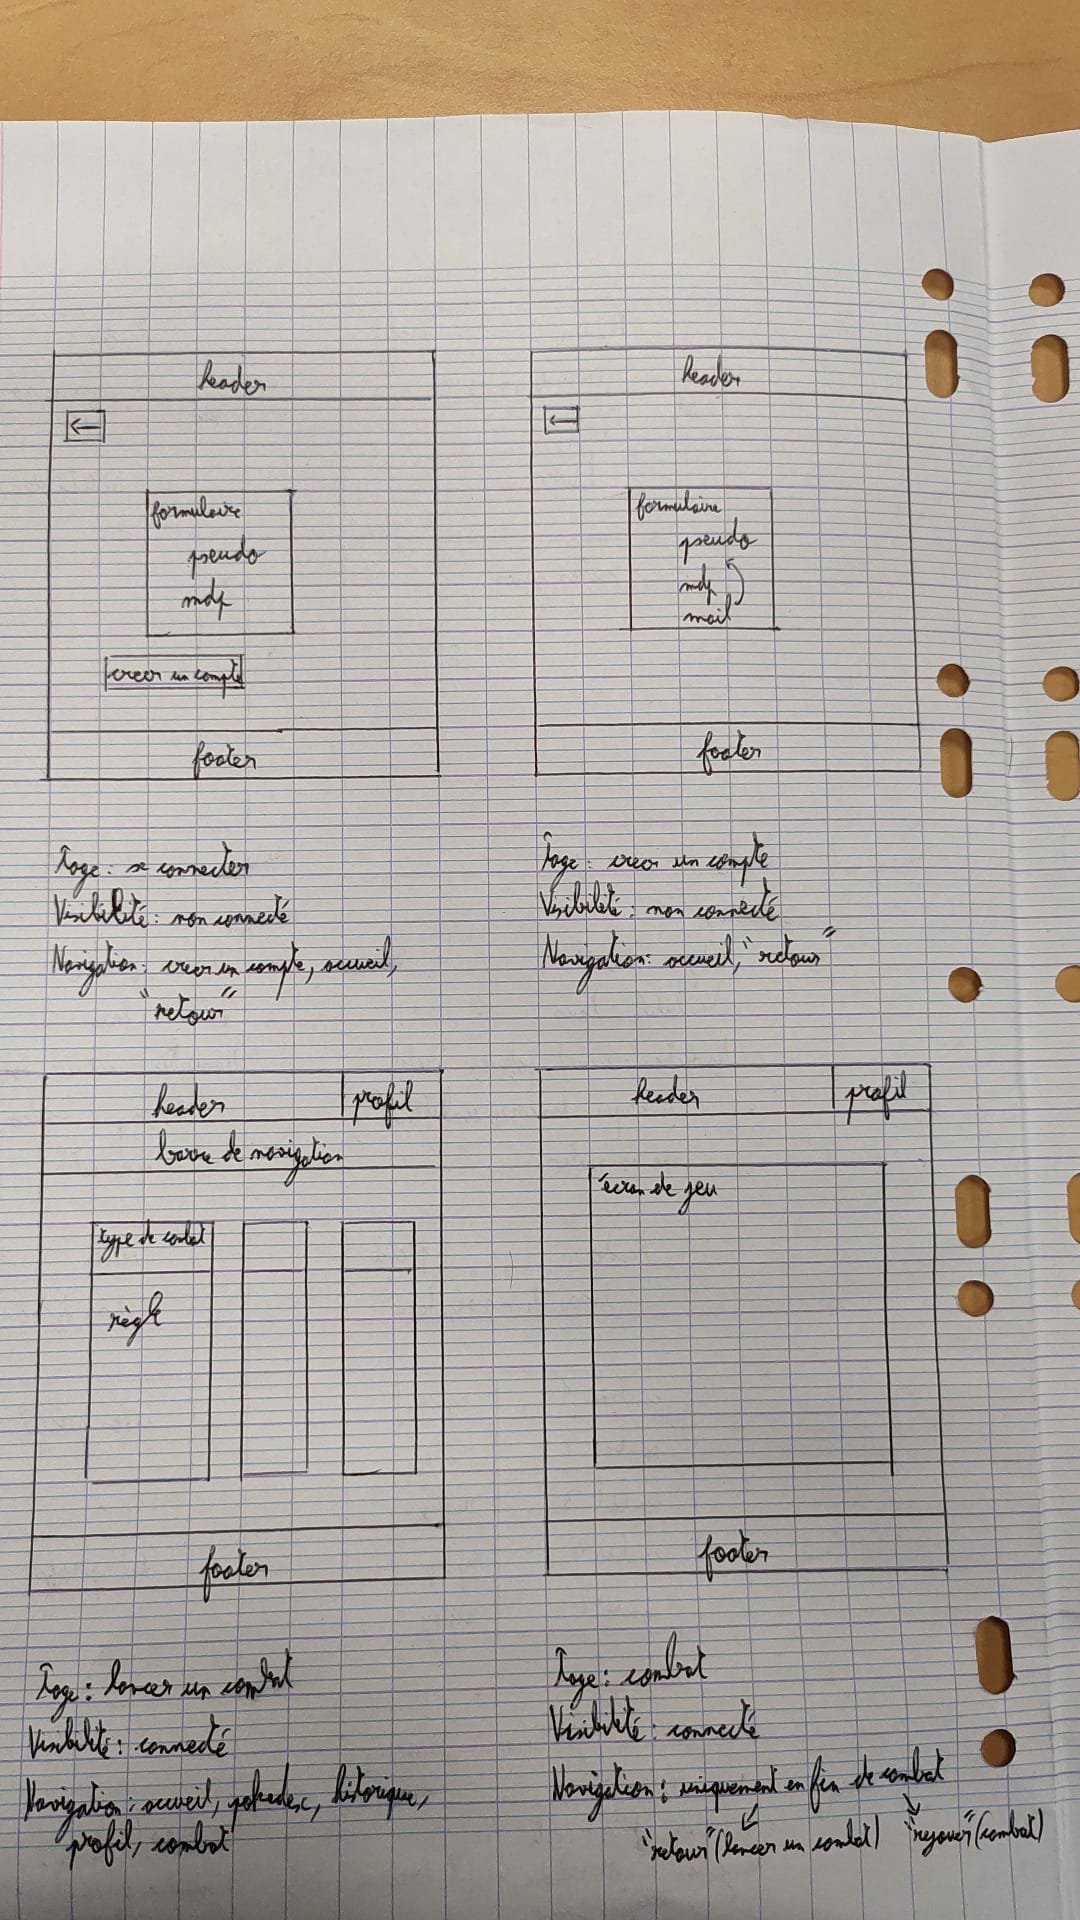 header
←
formulaire
pseudo
mdp
creer un compte
footer
Page : se connecter
Visibilité : non connecté
Navigation : creer un compte, accueil,
"retour"
header
←
formulaire
pseudo
mdp
mail
footer
Page : creer un compte
Visibilité : non connecté
Navigation : accueil, "retour"
header profil
barre de navigation
type de combat
règle
footer
Page : lancer un combat
Visibilité : connecté
Navigation : accueil, pokedex, historique,
profil, combat
header profil
écran de jeu
footer
Page : combat
Visibilité : connecté
Navigation : uniquement en fin de combat
"retour" (lancer un combat) "rejouer" (combat)